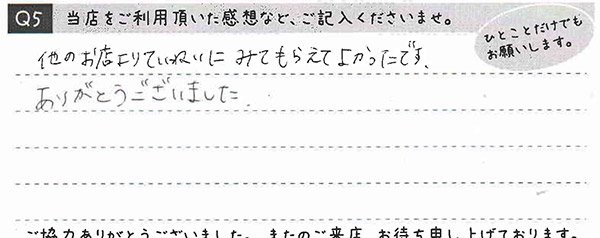 Q5 当店をご利用頂いた感想など、ご記入くださいませ。
ひとことだけでも
お願いします。
他のお店よりていねいに みてもらえてよかったです。
ありがとうございました。
ご協力ありがとうございました。またのご来店、お待ち申し上げております。